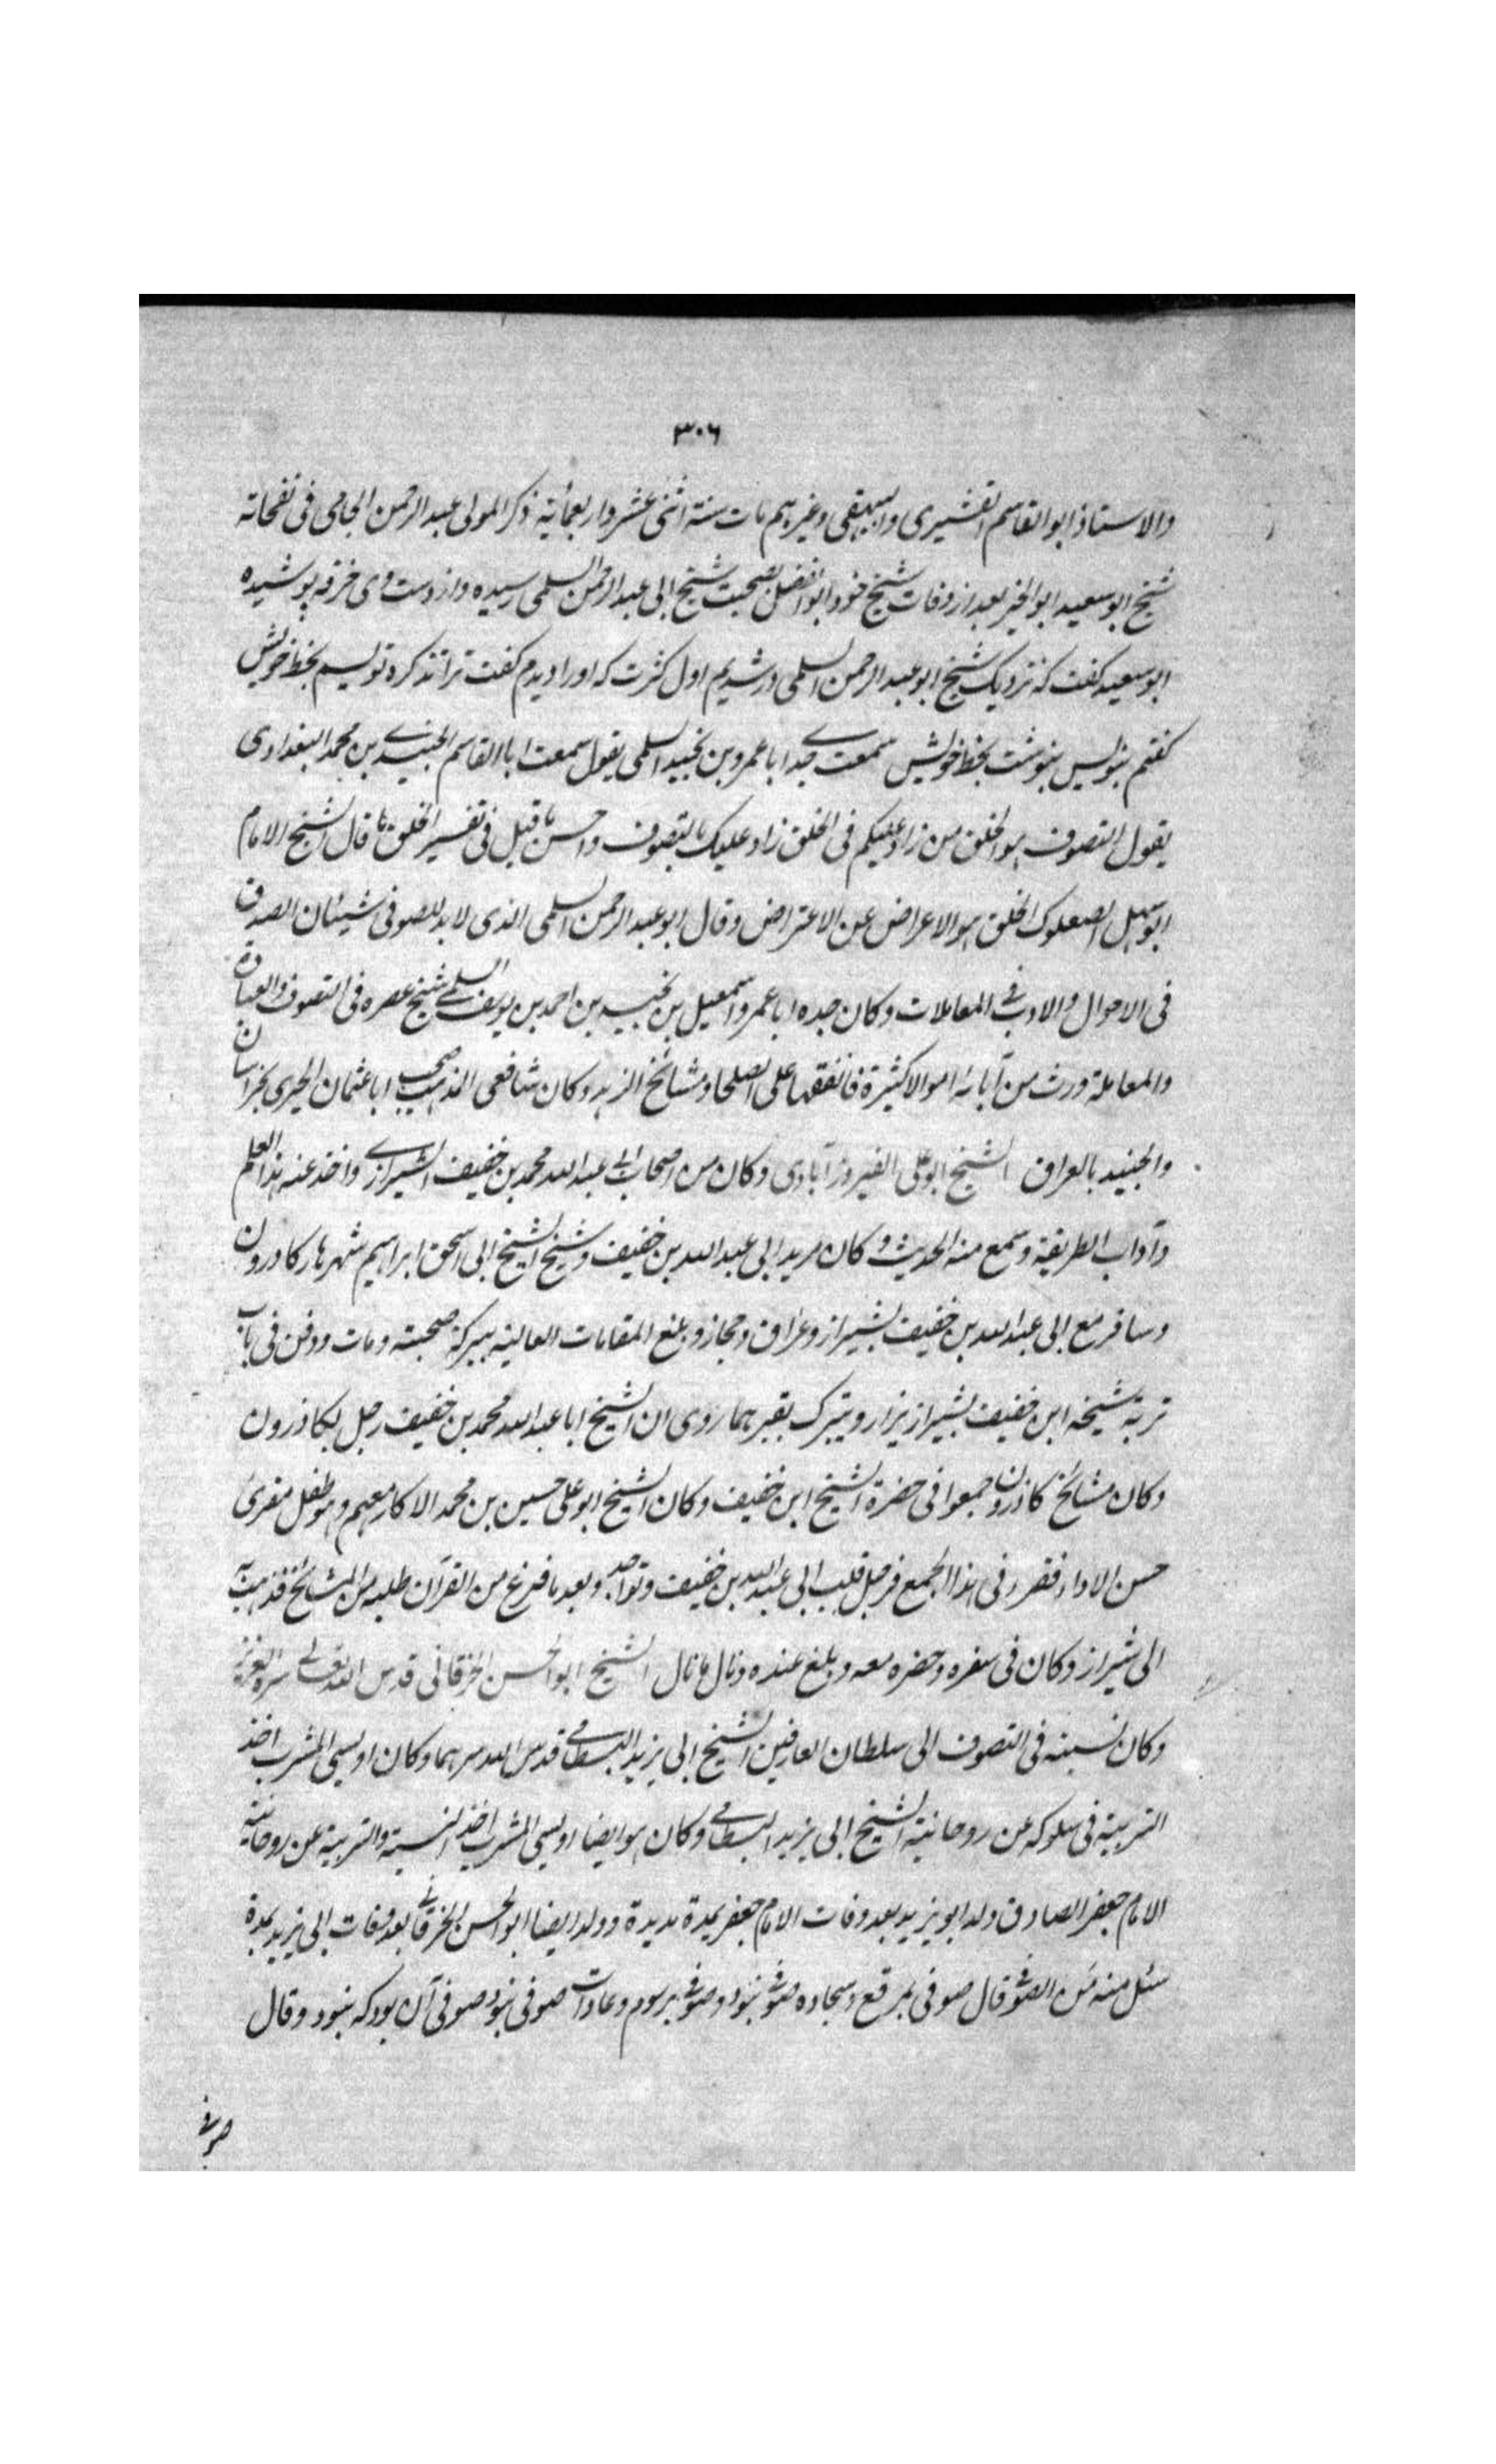 ٣٠٦
والاستاذ ابو القاسم القشيرى والبيهقى وغيرهم مات سنة اثنى عشر واربعمائة ذكر المولى عبد الرحمن الجامى فى نفحاته
شيخ ابو سعيد ابو الخير بعد از وفات شيخ خود ابو الفضل بصحبت شيخ ابى عبد الرحمن السلمى رسيده و از دست وى خرقه پوشيده
ابو سعيد كفت كه نزديك شيخ ابو عبد الرحمن السلمى در شديم اول كثرت كه او را ديدم كفت ترا تذكره نويسم بخط خويش
كفتم بنويس بنوشت بخط خويش سمعت جدى ابا عمرو بن نجيد السلمى يقول سمعت ابا القاسم الجنيد بن محمد البغدادى
يقول التصوف هو الخلق من زاد عليكم فى الخلق زاد عليك بالتصوف واحسن ما قيل فى تفسير الخلق ما قال الشيخ الامام
ابو سهل الصعلوك الخلق هو الاعراض عن الاعتراض وقال ابو عبد الرحمن السلمى الذى لا بد للصوفى شيئان الصدق
فى الاحوال والادب فى المعاملات وكان جده ابا عمرو اسمعيل بن نجيد بن احمد بن يوسف السلمى شيخ عصره فى التصوف والعبادة
والمعاملة ورث من آبائه اموالا كثيرة فانفقها على الصلحا ومشائخ الزهد وكان شافعى المذهب صحب ابا عثمان الحيرى بخراسان
والجنيد بالعراق الشيخ ابو على الفيروزآبادى وكان من اصحاب ابى عبد الله محمد بن خفيف الشيرازى واخذ عنه هذا العلم
وآداب الطريقة وسمع منه الحديث وكان مريد ابى عبد الله بن خفيف وشيخ الشيخ ابى اسحق ابراهيم شهريار كادرون
وسافر مع ابى عبد الله بن خفيف بشيراز وعراق وحجاز وبلغ المقامات العالية ببركة صحبته ومات ودفن فى باب
تربة شيخه ابن خفيف بشيراز يزار ويتبرك بقبرهما روى ان الشيخ ابا عبد الله محمد بن خفيف رحل بكاذرون
وكان مشائخ كاذرون جمعوا فى حضرة الشيخ ابن خفيف وكان الشيخ ابو على حسين بن محمد الاكار معهم وهو طفل مقرئ
حسن الاداء فقرر فى هذا المجمع فرحل قلب ابى عبد الله بن خفيف وتواجد وبعد ما فرغ من القرآن طلبه من المشائخ فذهب به
الى شيراز وكان فى سفره وحضره معه وبلغ عنده ونال ما نال الشيخ ابو الحسن الخرقانى قدس الله تعالى سره العزيز
وكان نسبته فى التصوف الى سلطان العارفين الشيخ ابى يزيد البسطامى قدس الله سرهما وكان اويسى المشرب اخذ
التربية فى سلوكه عن روحانية الشيخ ابى يزيد البسطامى وكان هو ايضا اويسى المشرب اخذ النسبة والتربية عن روحانية
الامام جعفر الصادق ولد ابو يزيد بعد وفات الامام جعفر بمدة مديدة وولد ايضا ابو الحسن الخرقانى بعد وفات ابى يزيد بمدة
سئل منه من الصوفى قال صوفى بمرقع وسجاده صوفى نبود وصوفى برسوم وعادات صوفى نبود صوفى آن بود كه نبود وقال